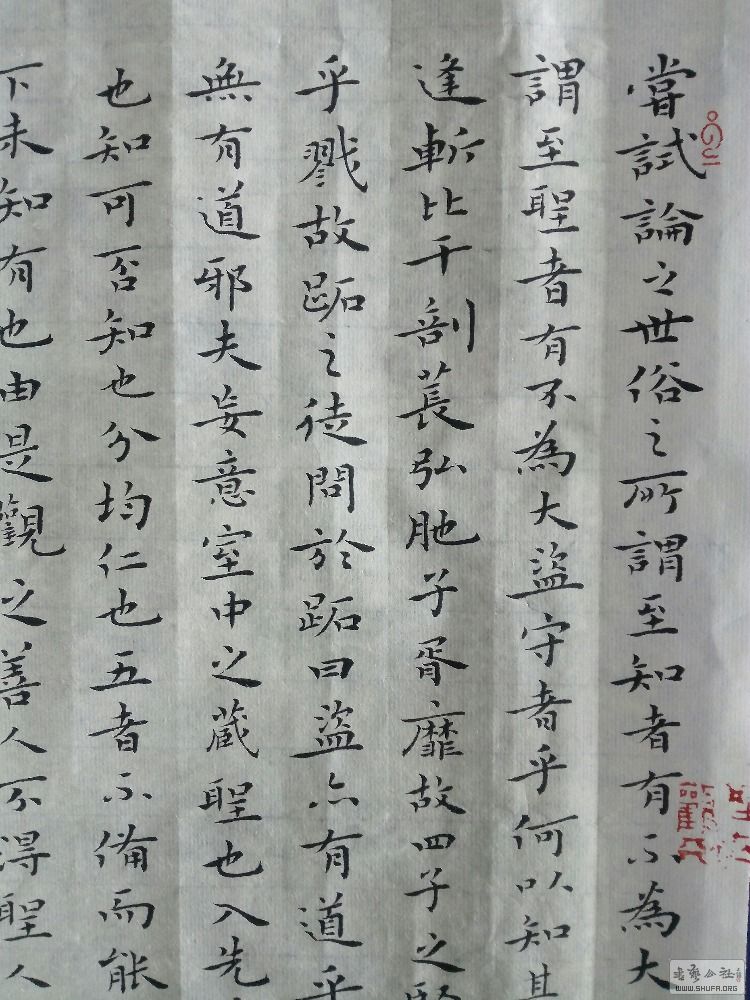 嘗試論之世俗之所謂至知者有不為大
謂至聖者有不為大盜守者乎何以知其
逢斬比干剖萇弘胣子胥靡故四子之賢
乎戮故跖之徒問於跖曰盜亦有道乎
無有道邪夫妄意室中之藏聖也入先
也知可否知也分均仁也五者不備而能
下未知有也由是觀之善人不得聖人
書法公社
WWW.SHUFA.ORG